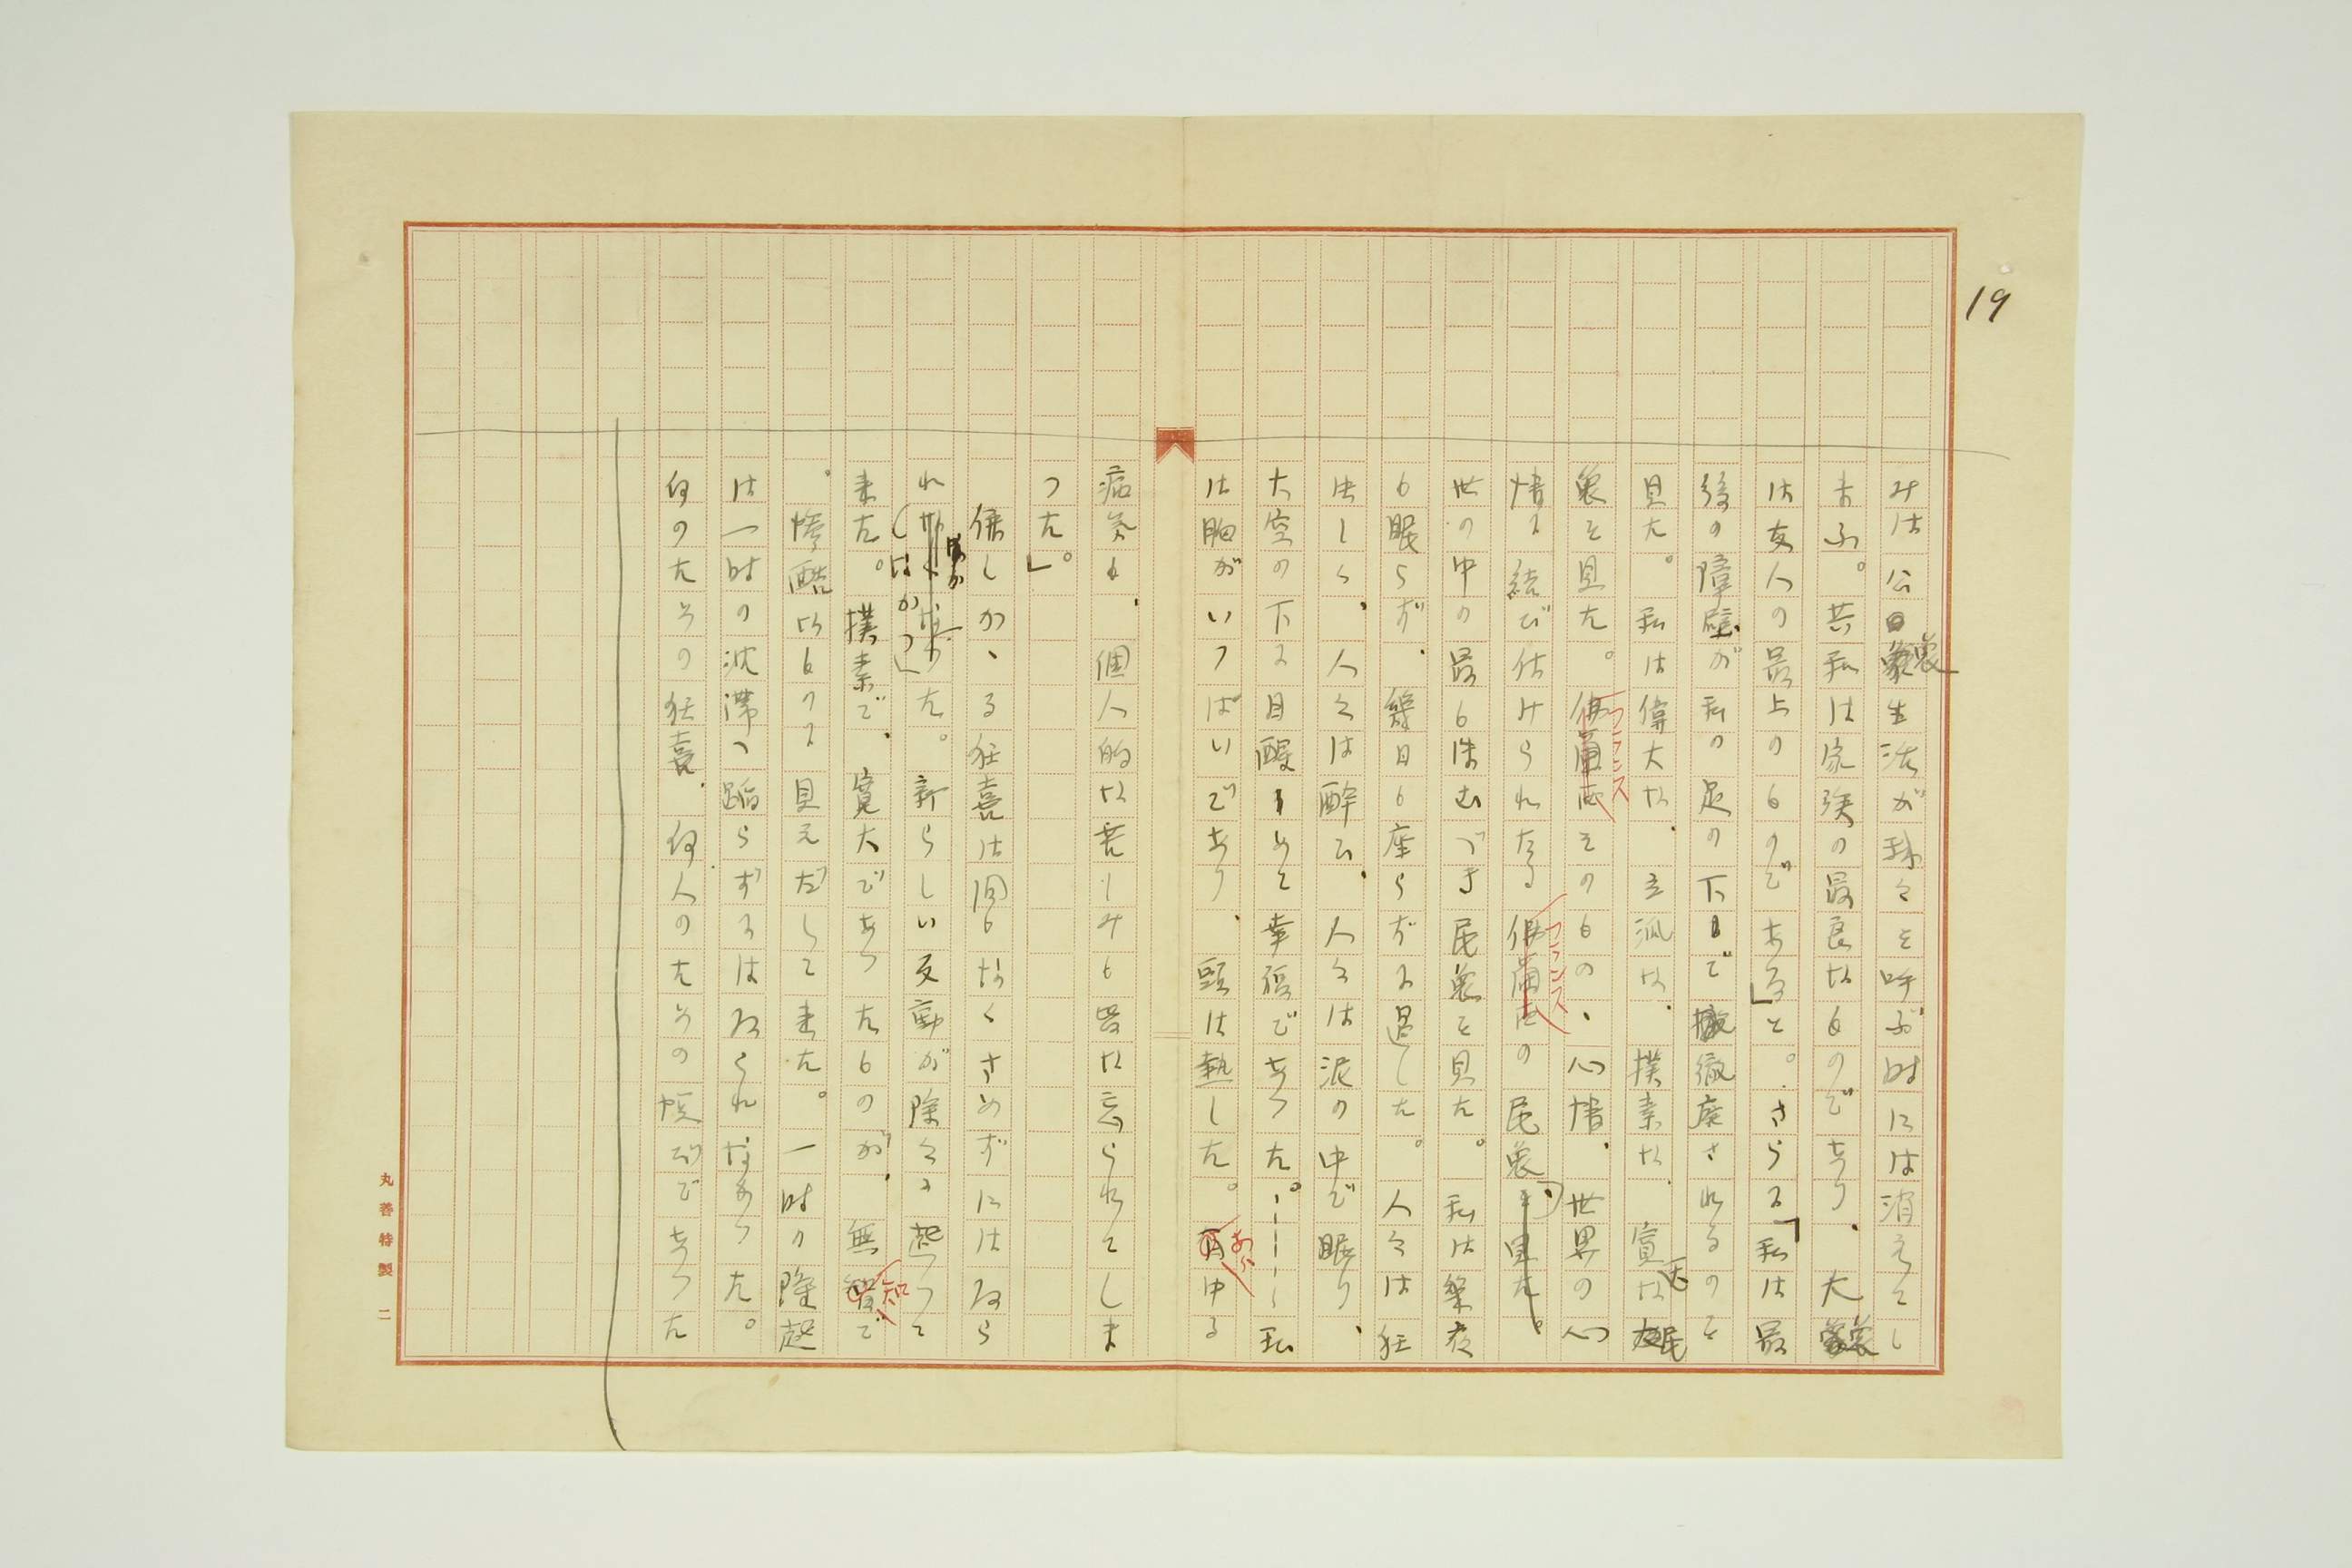 19
みは公衆生活が我々を呼ぶ時には消えてし
まふ。共和は家族の最良なものであり、大衆
は友人の最上のものである」と。さらに「私は最
後の障壁が私の足の下で撤廃されるのを
見た。私は偉大な、広汎な、撲素な、寛大な民
衆を見た。フランスその もの、心情、世界の心
情に結び付けられたるフランスの民衆を
世の中の最も進むべき民衆を見た。私は終夜
も眠らず、幾日も座らずに過した。人々は狂
出しく、人々は酔ひ、人々は泥の中で眠り、
大空の下に目醒しめて幸福であつた。――私
は胸がいつぱいであり、頭は熱した。あらゆる
病気も、個人的な苦しみも皆な忘られてしま
つた」。
併しかゝる狂喜は間もなくさめずにはゐら
れなかつた。新らしい反動が除々に起つて
来た。撲素で、寛大であつたものが、無知で
、惨酷なものに見えだして来た。一時の隆起
は一時の沈滞へ蹈らずにはゐられなかつた。
何のたその狂喜、何人のたその悦びであつた
丸善特製 二